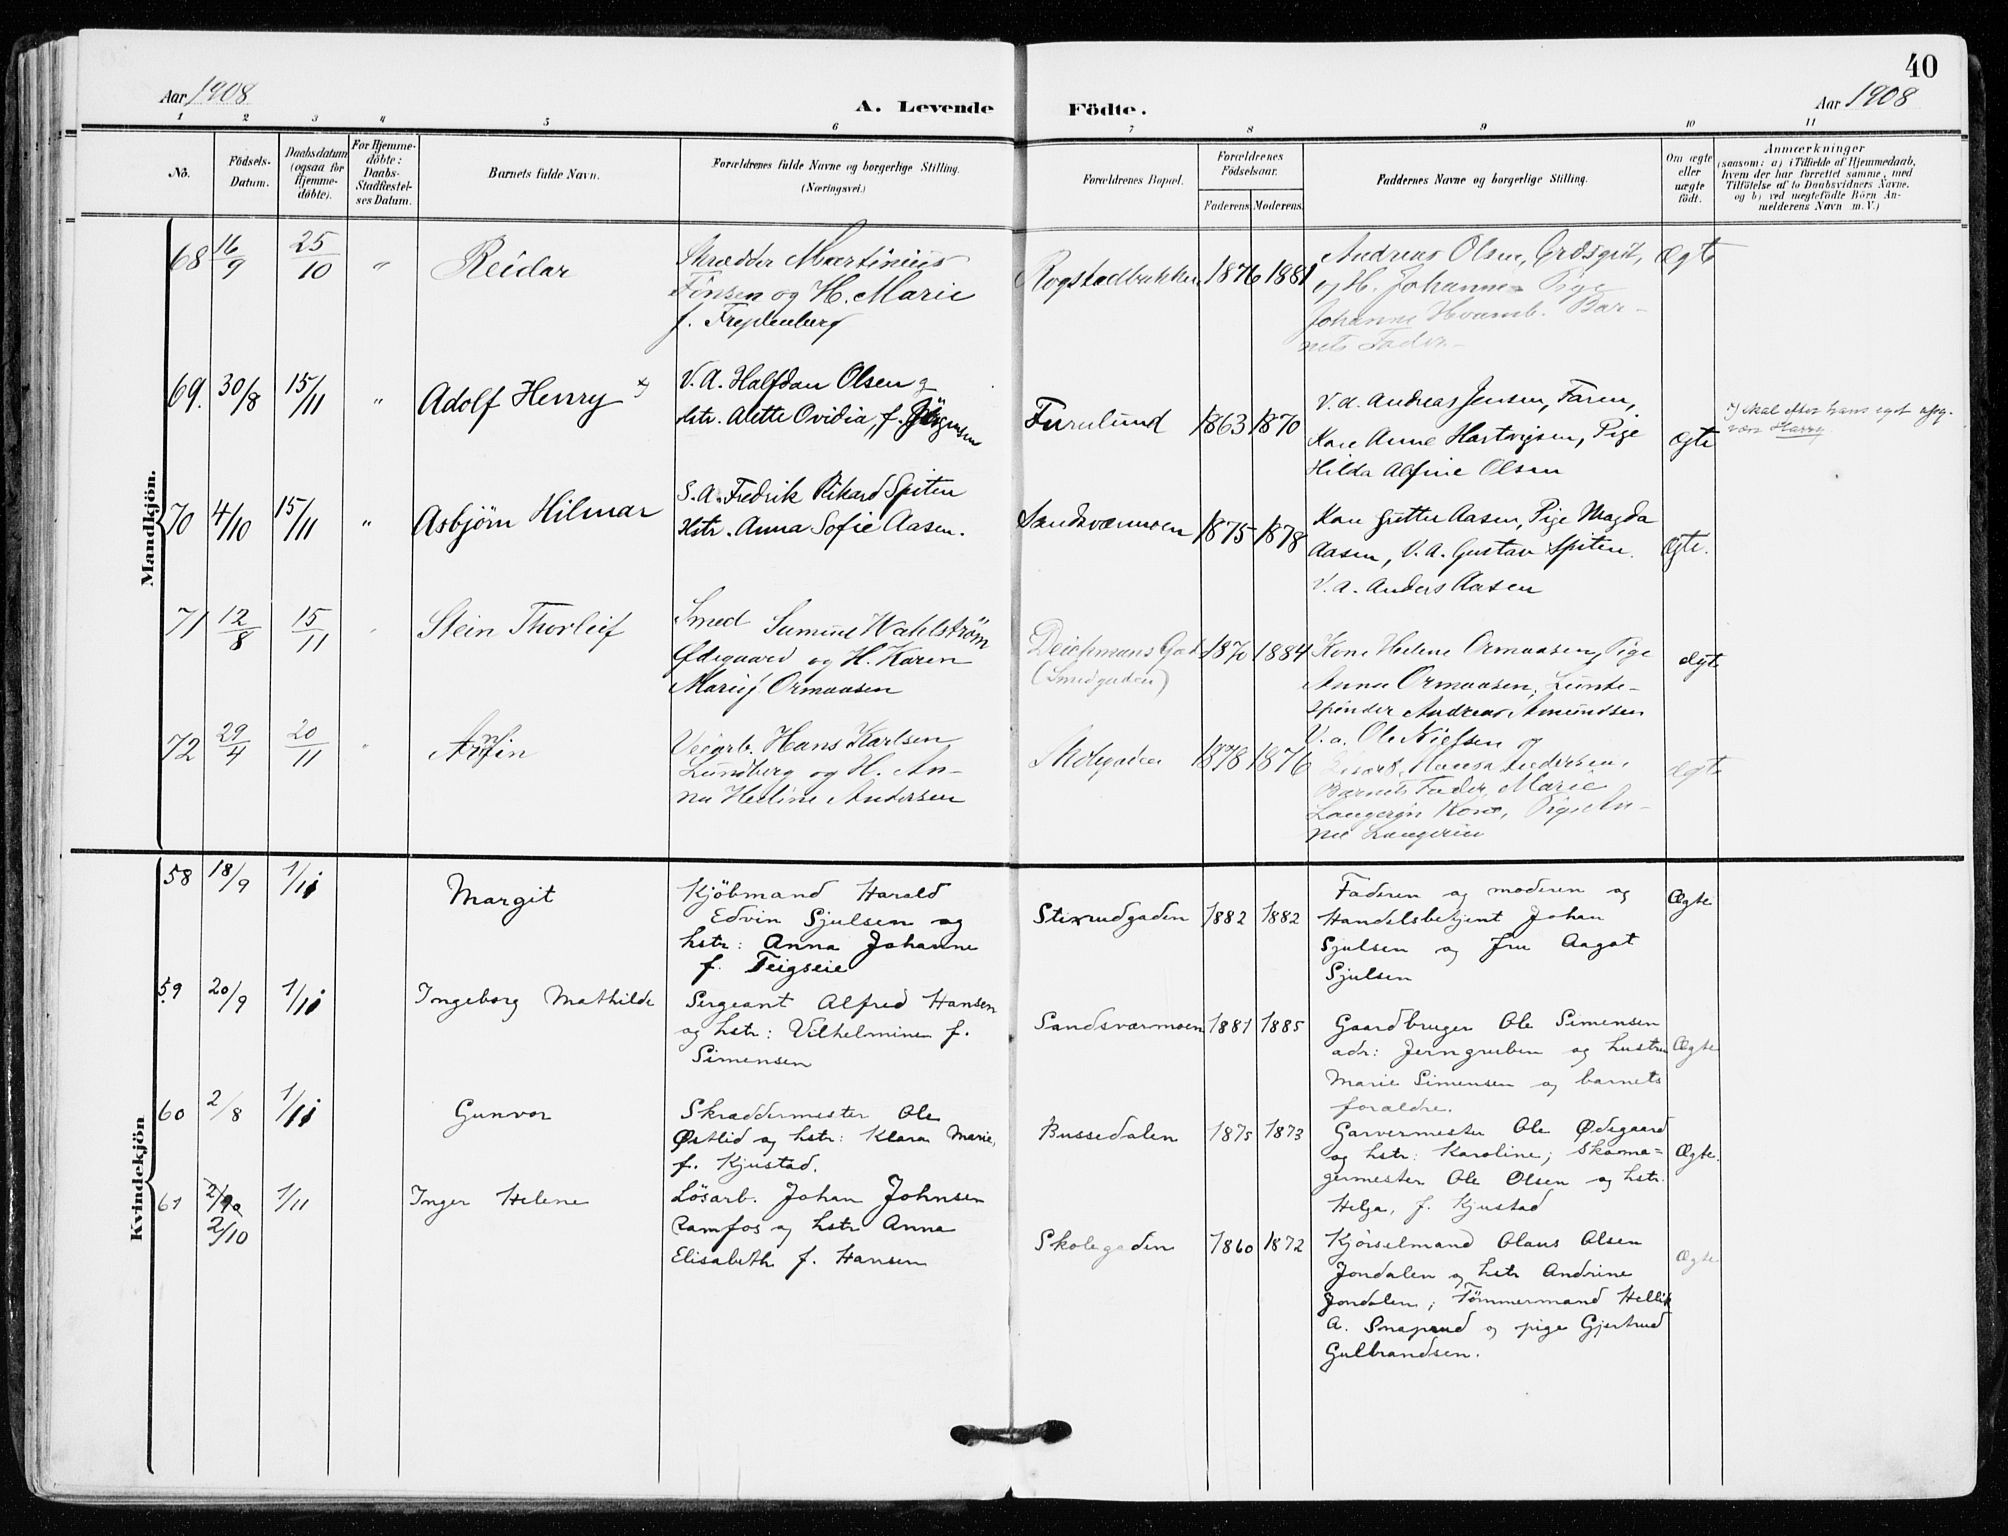 40
Aar 1908
A. Levende Födte.
Aar 1908
1 2 3 4 5 6 7 8 9 10 11
No.
Födsels-Datum.
Daabsdatum (ogsaa for Hjemme-döbte).
For Hjemme-döbte: Daabs-Stadfæstel-ses Datum.
Barnets fulde Navn.
Forældrenes fulde Navne og borgerlige Stilling. (Næringsvei.)
Forældrenes Bopæl.
Forældrenes Födselsaar.
Faderens Moderens
Faddernes Navne og borgerlige Stilling.
Om ægte eller uægte födt.
Anmærkninger
(saasom: a) i Tilfælde af Hjemmedaab,
hvem der har forrettet samme, med
Tilföielse af to Daabsvidners Navne,
og b) ved uægtefödte Börn An-
melderens Navn m. V.)
Mandkjön.
68 16/9 25/10 " Reidar
Skrædder Martinius
Finsen og H. Marie
f. Freydenberg
Rogstadbakken 1876 1881
Andreas Olsen,
og H. Johanne Pige
Johanne Hvamb. Bar-
nets Fader
Ægte
69. 30/8 15/11 " Adolf Henry x)
V.A. Halfdan Olsen g
Hstr. Alette Ovidia, f. Jörgensen
Furulund 1863 1870
V.A. Andreas Jensen, Faren,
Kone Anne Hartvigsen, Pige
Hilda Alfine Olsen
Ægte
x) skal efter hans eget
være Harry
70 4/10 15/11 " Asbjörn Hilmar
S.A. Fredrik Rikard Spiten
Hstr. Anna Sofie Aasen.
Sandsværmoen 1875 1878
Kone Grethe Aasen, Pige Magda
Aasen, V.A. Gustav Spiten.
V.A. Anders Aasen
Ægte.
71 12/8 15/11 " Stein Thorleif
Smed Samuel Wahlström
Ødegaard og H. Karen
Marie f. Ormaasen
Deichmans Gad
(Smedgaden)
1870 1884
Kone Helene Ormaasen, Pige
Anna Ormaasen, Lunte-
spinder Andreas Amundsen
ægte
72 29/4 20/11 " Arnfin
Veiarb. Hans Karlsen
Lundberg og H. An-
na Heline Andersen
1878 1876
V.a. Ole Nielsen og
Barnets Fader, Marie
Langerün Kone, Pige An-
na Langerün
ægte
Kvindekjön
58 18/9 1/11 Margit
Kjöbmand Harald
Edvin Sjulsen og
hstr: Anna Johanne
f. Teigseie
Stixrudgaden 1882 1882
Faderen og moderen og
Handelsbetjent Johan
Sjulsen og fru Aagot
Sjulsen
Ægte
59 20/9 1/11 Ingeborg Mathilde
Sergeant Alfred Hansen
og hstr: Vilhelmine f.
Simensen
Sandsværmoen 1881 1885
Gaardbruger Ole Simensen
adr: Jerngruben og hustru
Marie Simensen og barnets
forældre.
Ægte
60 2/8 1/11 Gunvor
Skræddermester Ole
Østlid og hstr: Klara Marie,
f. Kjustad.
Bussedalen 1875 1873
Garvermester Ole Ødegaard
og hstr: Karoline; Skoma-
germester Ole Olsen og hstr.
Helga, f. Kjustad
Ægte.
61 2/10 1/11 Inger Helene
Lösarb. Johan Johnsen
Ramfos og hstr Anna
Elisabeth f. Hansen
Skolegaden 1860 1872
Kjörselmand Olaus Olsen
Jondalen og hstr Andrine
Jondalen; Tömmermand Hellik
A. og pige Gjertrud
Gulbrandsen.
Ægte